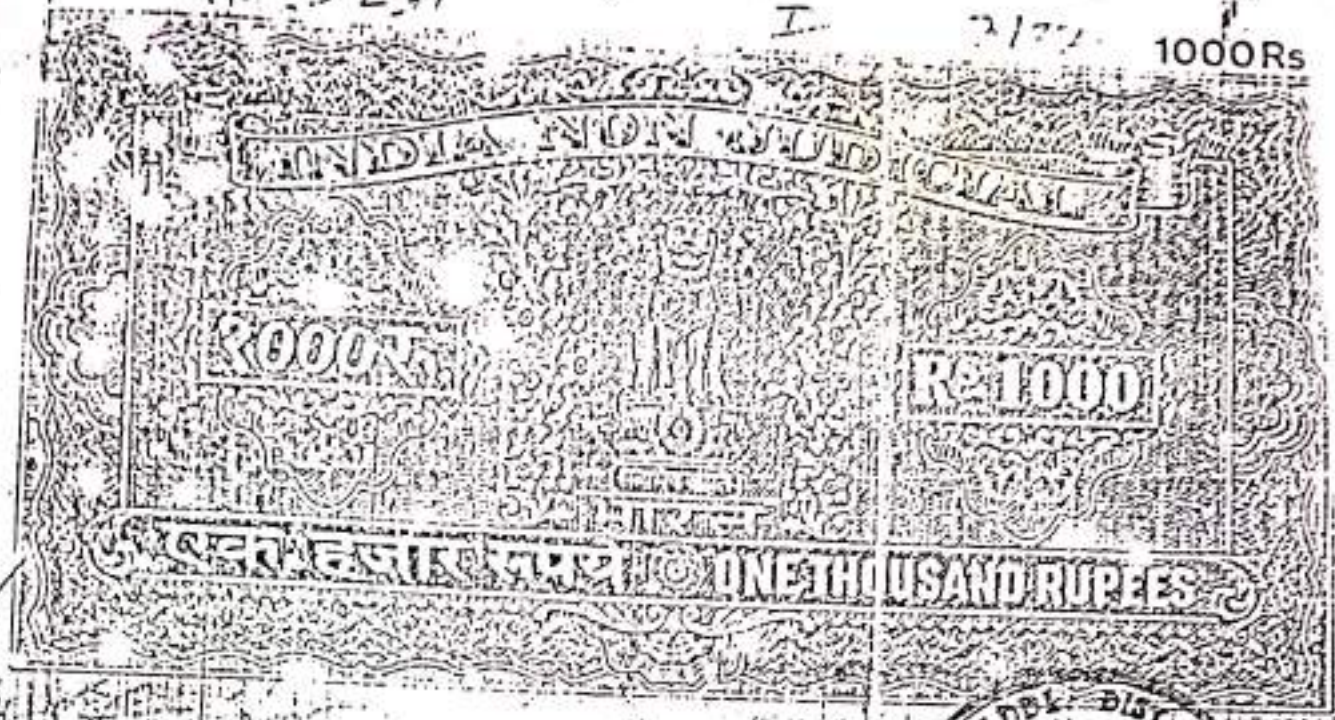 1000Rs
INDIA NON JUDICIAL
१०००रु.
Rs 1000
भारत
एक हजार रुपये ONE THOUSAND RUPEES